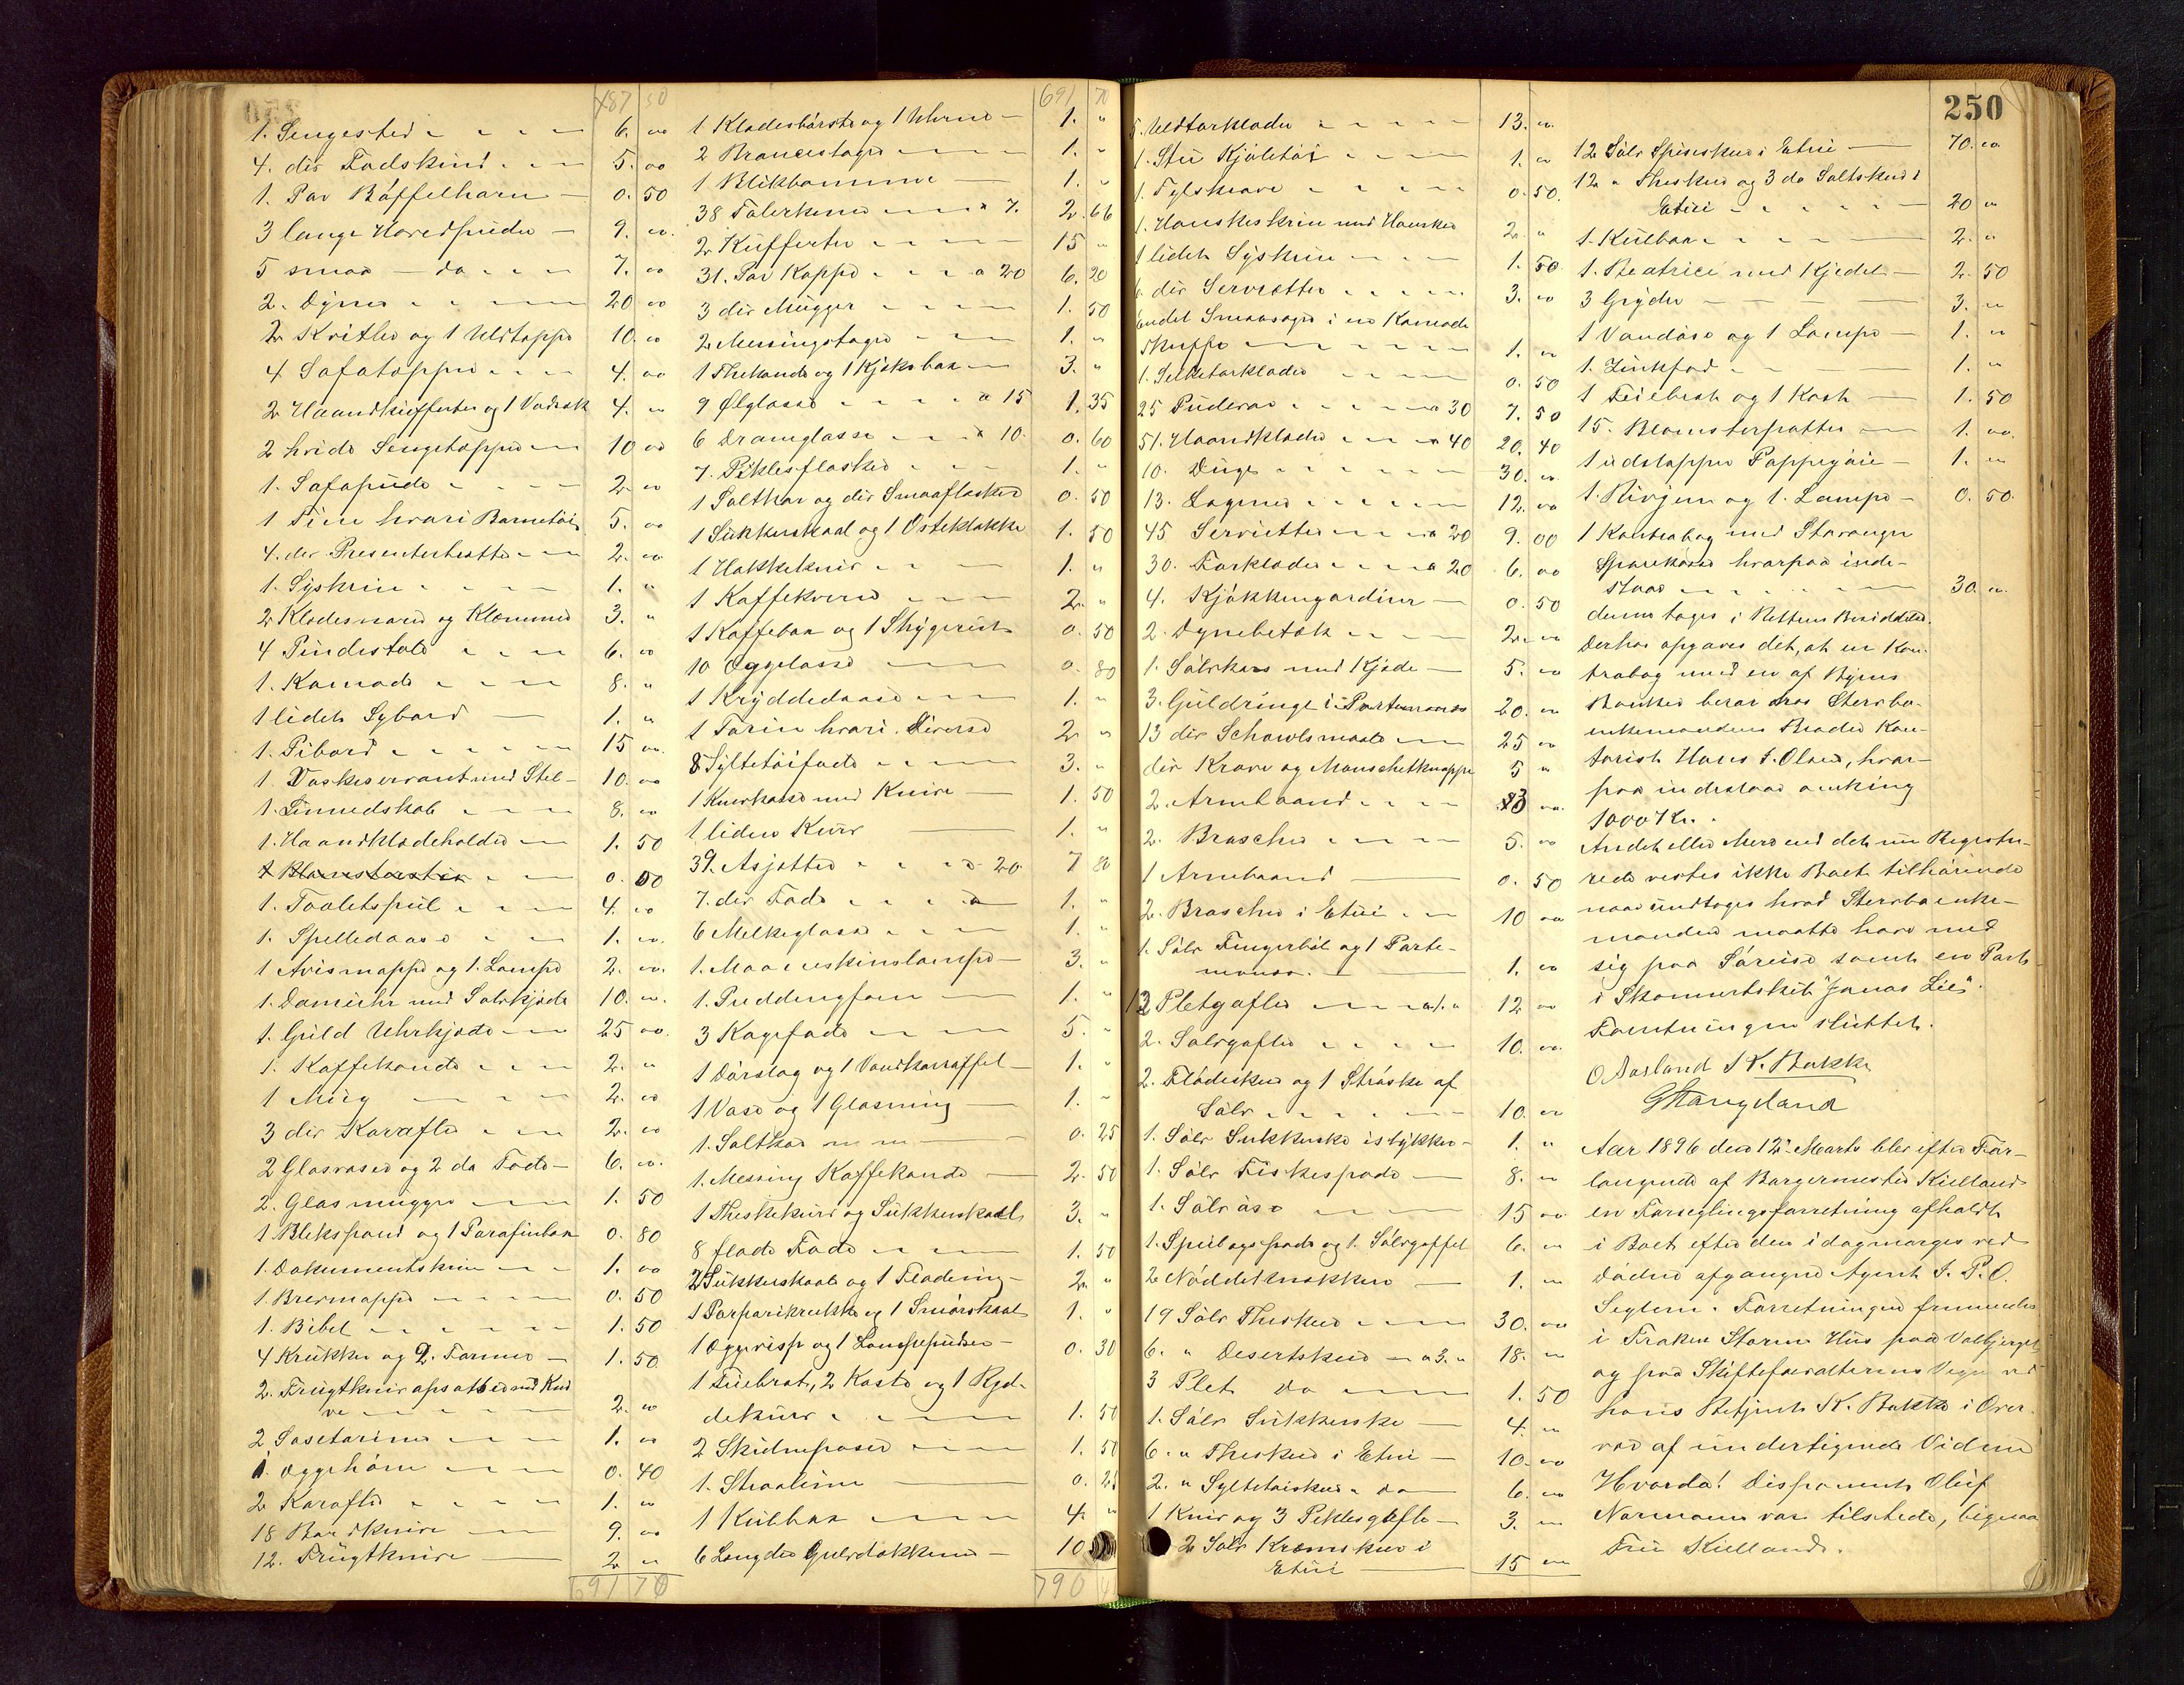 250
487 50
1. Sengested 6. 00
4. div Fodskind 5. 00
1. Par Bøffelhorn 0. 50
3 lange Hovedpuder 9. 00
5 smaa do 7. 00
2. Dyner 20 00
2 Kvitler og 1 Uldtæppe 10. 00
4 Sofatæpper 4. 00
2 Haandkufferter og 1 Vadsæk 4. 00
2 hvide Sengetæpper 10 00
1. Sofapude 2. 00
1 Tine hvori Barnetøi 5. 00
4. div Presenterbrette 2. 00
1. Syskrin 1. "
2 Klædesnorer og Klemmer 3. "
4 Pindestole 6. 00
1. Komode 8. "
1 lidet Sybord 1. "
1. Pibord 15 00
1. Vaskeservant med Stel 10. 00
1. Linnedskab 8. 00
1. Haandklædeholder 1. 50
0. 00
1. Toiletspeil 4. 00
1. Spilledaase 1. 00
1 Avismappe og 1. Lampe 2. 00
1. Dameuhr med Sølvkjæde 10. 00
1. Guld Uhrkjæde 25 00
1. Kaffekande 2. "
1 Mug 2. 00
3 div Karafler 2. 00
2 Glasvaser og 2 do Fade 6. 00
2. Glasmugger 1. 50
1 Blekspand og 1 Parafinbox 0. 80
1. Dokumentskrin 1. 00
1. Brevmappe 0. 50
1. Bibel 1. 50
4 Krukker og 2. Former 1. 50
2. Frugtknivopsatser med Kni
ve 2. 00
2 Sosetoriner 1. 00
1. Æggehøne 0. 40
2 Karafler 1. 00
18 Bordknive 9. 00
12. Frugtknive 2 "
691 70
691 70
1 Klædesbørste og 1 Uhrne 1. "
2 Broncestager 1. "
1 Blikbomme 1. "
38 Tallerkener a 7. 2. 66
2 Kufferter 15 "
31. Par Kopper a 20 6. 20
3 div Mugger 1. 50
2 Messingstager 1. "
1 Thekande og 1 Kjeksbox 3. "
9 Ølglasse a 15 1. 35
6 Dramglasse a 10. 0. 60
7. Piklesflasker 1. "
1 Saltkar og div Smaaflasker 0. 50
1 Sukkerskaal og 1 Osteklokke 1. 50
1 Hakkekniv 1. "
1 Kaffekvern 2. "
1 Kaffebox og 1 Strygerist 0. 50
10 Æggeglasse 0. 80
1 Krydderdaase 1. "
1 Torin hvori Diverse 2 "
8 Syltetøifade 3. "
1 Knivkasse med Knive 1. 50
1 liden Kurv 1. "
39. Asjetter a 20 7 80
7. div Fade 1. "
6 Melkeglasse 1. "
1. Maaneskinslampe 3. "
1. Puddingform 1. "
3 Kagefade 5. "
1 Dørslag og 1 Vandkaraffel 1. "
1 Vase og 1 Glasming 1. "
1. Saltkar 0. 25
1. Messing Kaffekande 2. 50
1 Theskekurv og Sukkerskaal 3. "
8 flade Fade 1. 50
2 Sukkerskaale og 1 Flødeming 2. "
1 Porparikrukke og 1 Smørskaal 1. "
1 Æggevisp og 1 Lampepudser 0. 30
1 Fiiebret, 2 Koste og 1 Rød-
dekurv 1. 50
2 Skildreposer 1. 50
1. Straaline 0. 25
1 Kulbox 4. "
6 Længder Gulvdækkener 10
790
5. Uldtørklæder 13. 00
1. Stu Kjoletøi 1. 00
1. Tylskrave 0. 50.
1. Hanskeskrin med Hansker 2. "
1 lidet Syskrin 1. 50
6 div Servietter 3. 00
Endel Smaasager i en Komode
Skuffe 1. 00
1. Silketørklæde 0. 50
25 Pudevar a 30 7. 50
51. Haandklæder a 40 20. 40
10. Duge 30. 00
13. Lagener 12. 00
45 Servietter a 20 9. 00
30. Forklæder a 20 6. 00
4. Kjøkkengardiner 0. 50
2. Dynebetæk 2. 00
1. Sølvkors med Kjæde 5. 00
3. Guldringe i Portemonæ 20. 00
13 div Schawlsmaale 25 00
div Krave og Manschetknapper 5 "
2. Armbaand 13 00.
2. Brosche 5. 00
1 Armbaand 0. 50
2. Broscher i Etui 10 00
1. Sølv Fingerbøl og 1 Porte-
monæ. 1. 00
12 Pletgafler a 1. " 12 00
2. Sølvgafler 10. 00.
2. Flødeskeer og 1 Strøske af
Sølv 10. 00
1. Sølv Sukkerske istykker 1. "
1. Sølv Fiskespade 8. "
1. Sølv øse 15 00
1. Speilægsspade og 1. Sølvgaffel 6. "
2 Nøddeknækkere 1. "
19 Sølv Theskeer 30. 00
6. " Desertskeer a 3. " 18. "
3 Plet do 1. 50
1. Sølv Sukkerske 4. "
6. " Theskeer i Etui 10. 00
2. " Syltetøiskeer do 6. 00
1 Kniv og 3 Piklesgafle 3. "
2 Sølv Kremskeer i
Etui 15 00
12 Sølv Spiseskeer i Etui 70. 00
12 " Theskeer og 3 do Saltskeer i
Etui 20 "
1. Kulbox 2. "
1. Beatrice med Kjedel 2. 50
3 Gryder 3. "
1 Vandøse og 1 Lampe 1. "
1. Zinkfad 1. "
1 Feiebret og 1 Kost 1. 50
15. Blomsterpotter 1. 00.
1 udstoppet Poppegøie 1. "
1. Rivjern og 1. Lampe 0. 50.
1 Kontrabog med Stavanger
Sparekasse hvorpaa inde-
staar 30. 00
denne toges i Rettens Besiddelse.
Derhos opgaves det, at en Kon-
trabog med en af Byens
Banker beror hos Stervbo-
enkemandens Broder Kon-
torist Hans I. Olsen, hvor-
paa indestaar omkring
1000 Kr.
Andet eller Mere end det nu Registre-
rede vistes ikke Boet tilhørende
naar undtages hvad Stervboenke-
manden maatte have med
sig paa Søreise samt en Part
i Skonnertskib "Jonas Lie".
Forretningen sluttet.
O Aarland K. Bakke
G Stangeland
Aar 1896 den 12te Marts blev efter For-
langende af Borgermester Kielland
en Forseglingsforretning afholdt
i Boet efter den i dag morges ved
Døden afgangne Agent I. P. O.
Seglem. Forretningen fremmedes
i Frøken Storms Hus paa Valbjerget
og paa Skifteforvalterens Vegne ved
hans Betjent K. Bakke i Over-
vær af undertegnede Vidner
Hvorda! Disponent Oluf
Normann var tilstede, ligesaa
Fru Kielland.